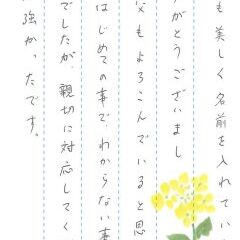 も美しく名前を入れてい
がとうございまし
父もよろこんでいると思
はじめての事で、わからない事
でしたが、親切に対応してく
強かったです。